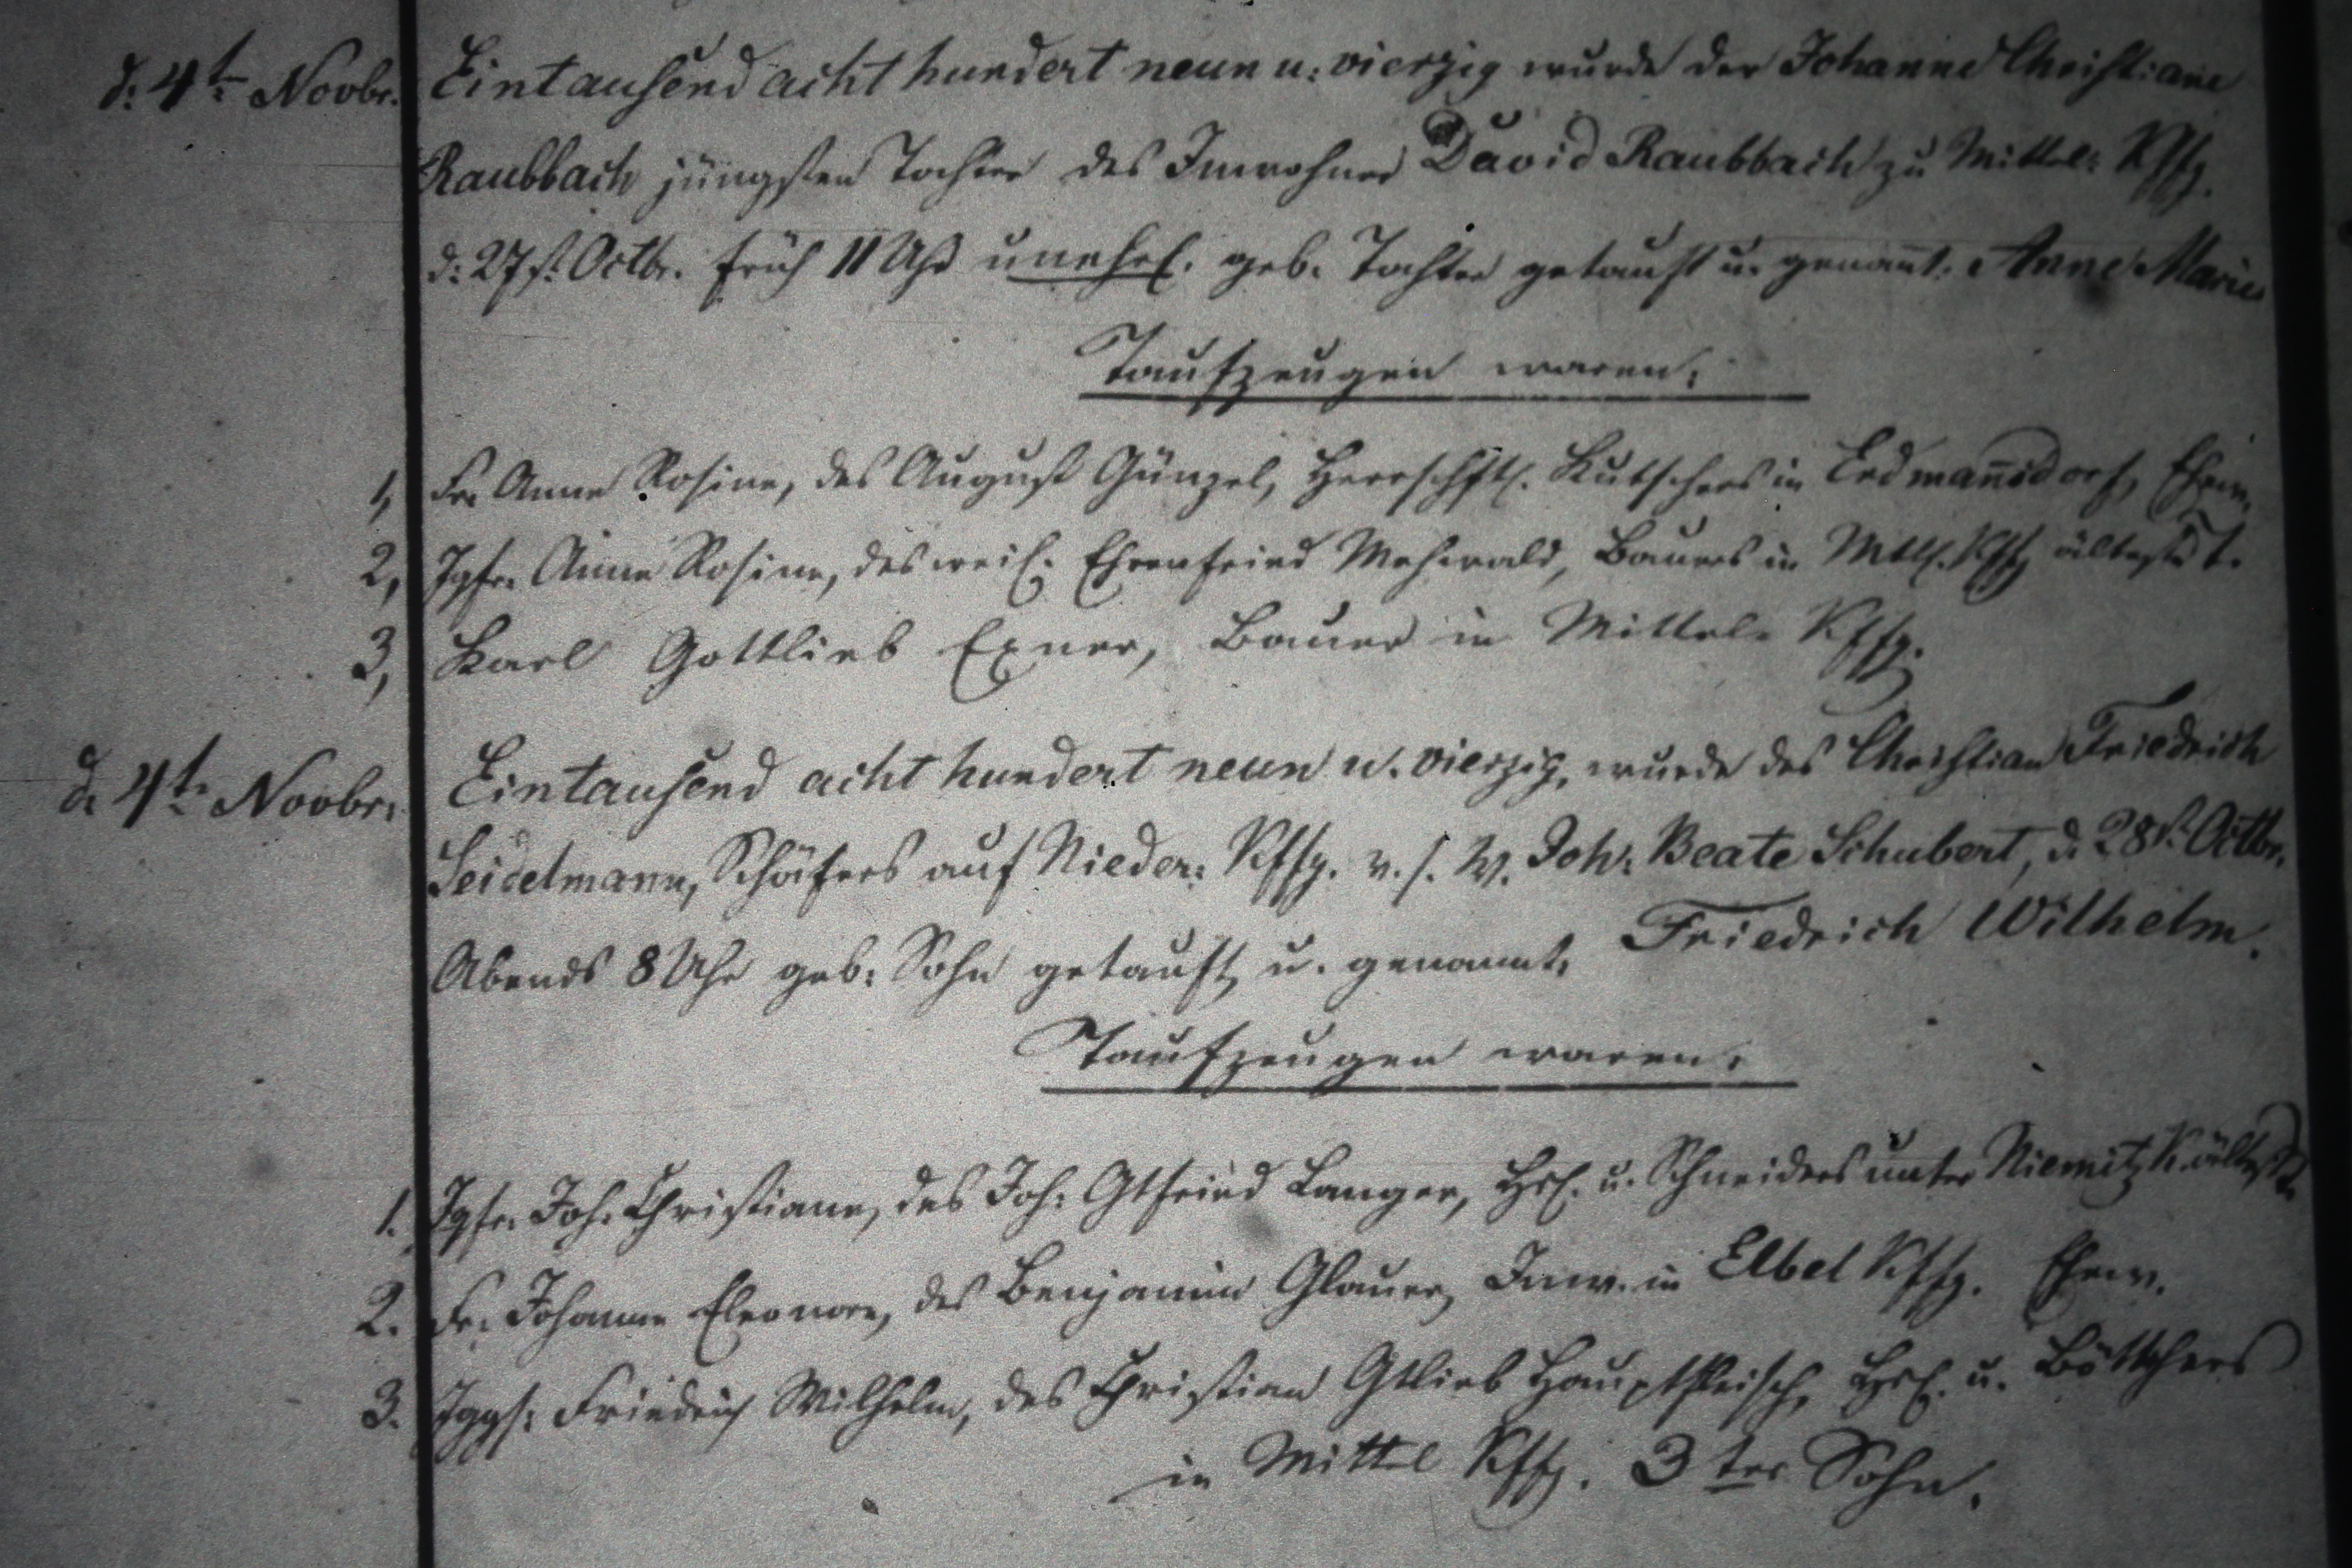 d. 4t. Novbr. Eintausend acht hundert neun u. vierzig wurde der Johanne Christiane
Raubbach jüngsten Tochter des Inwohner David Raubbach zu Mittel: Kffg.
d. 27st. Octbr. früh 11 Uhr unehel. geb. Tochter getauft u. genannt. Anne Marie
Taufzeugen waren.
1, Fr. Anne Rosine, des August Günzel, Herrschftl. Kutschers in Erdmannsdorf, Ehew.
2, Jgfr. Anne Rosine, des weil. Ehrenfried Mehwald, Bauers in Mttl. Kffg älteste T.
3, Karl Gottlieb Exner, Bauer in Mittel- Kffg.
d. 4t. Novbr. Eintausend acht hundert neun u. vierzig, wurde des Christian Friedrich
Seidelmann, Schäfers auf Nieder: Kffg. v. s. W. Joh: Beate Schubert, d. 28st. Octbr.
Abends 8 Uhr geb: Sohn getauft u. genannt, Friedrich Wilhelm.
Taufzeugen waren.
1. Jgfr. Joh. Christiane, des Joh: Gtfried Langer, Hsl. u. Schneiders unter Niemitz K. älteste T.
2. Fr. Johanne Eleonore, des Benjamin Glauer, Inw. in Elbel Kffg. Ehew.
3. Jggs: Friedrich Wilhelm, des Christian Gtlieb Hauptfleisch, Hsl. u. Böttchers
in Mittel Kffg. 3ter Sohn.